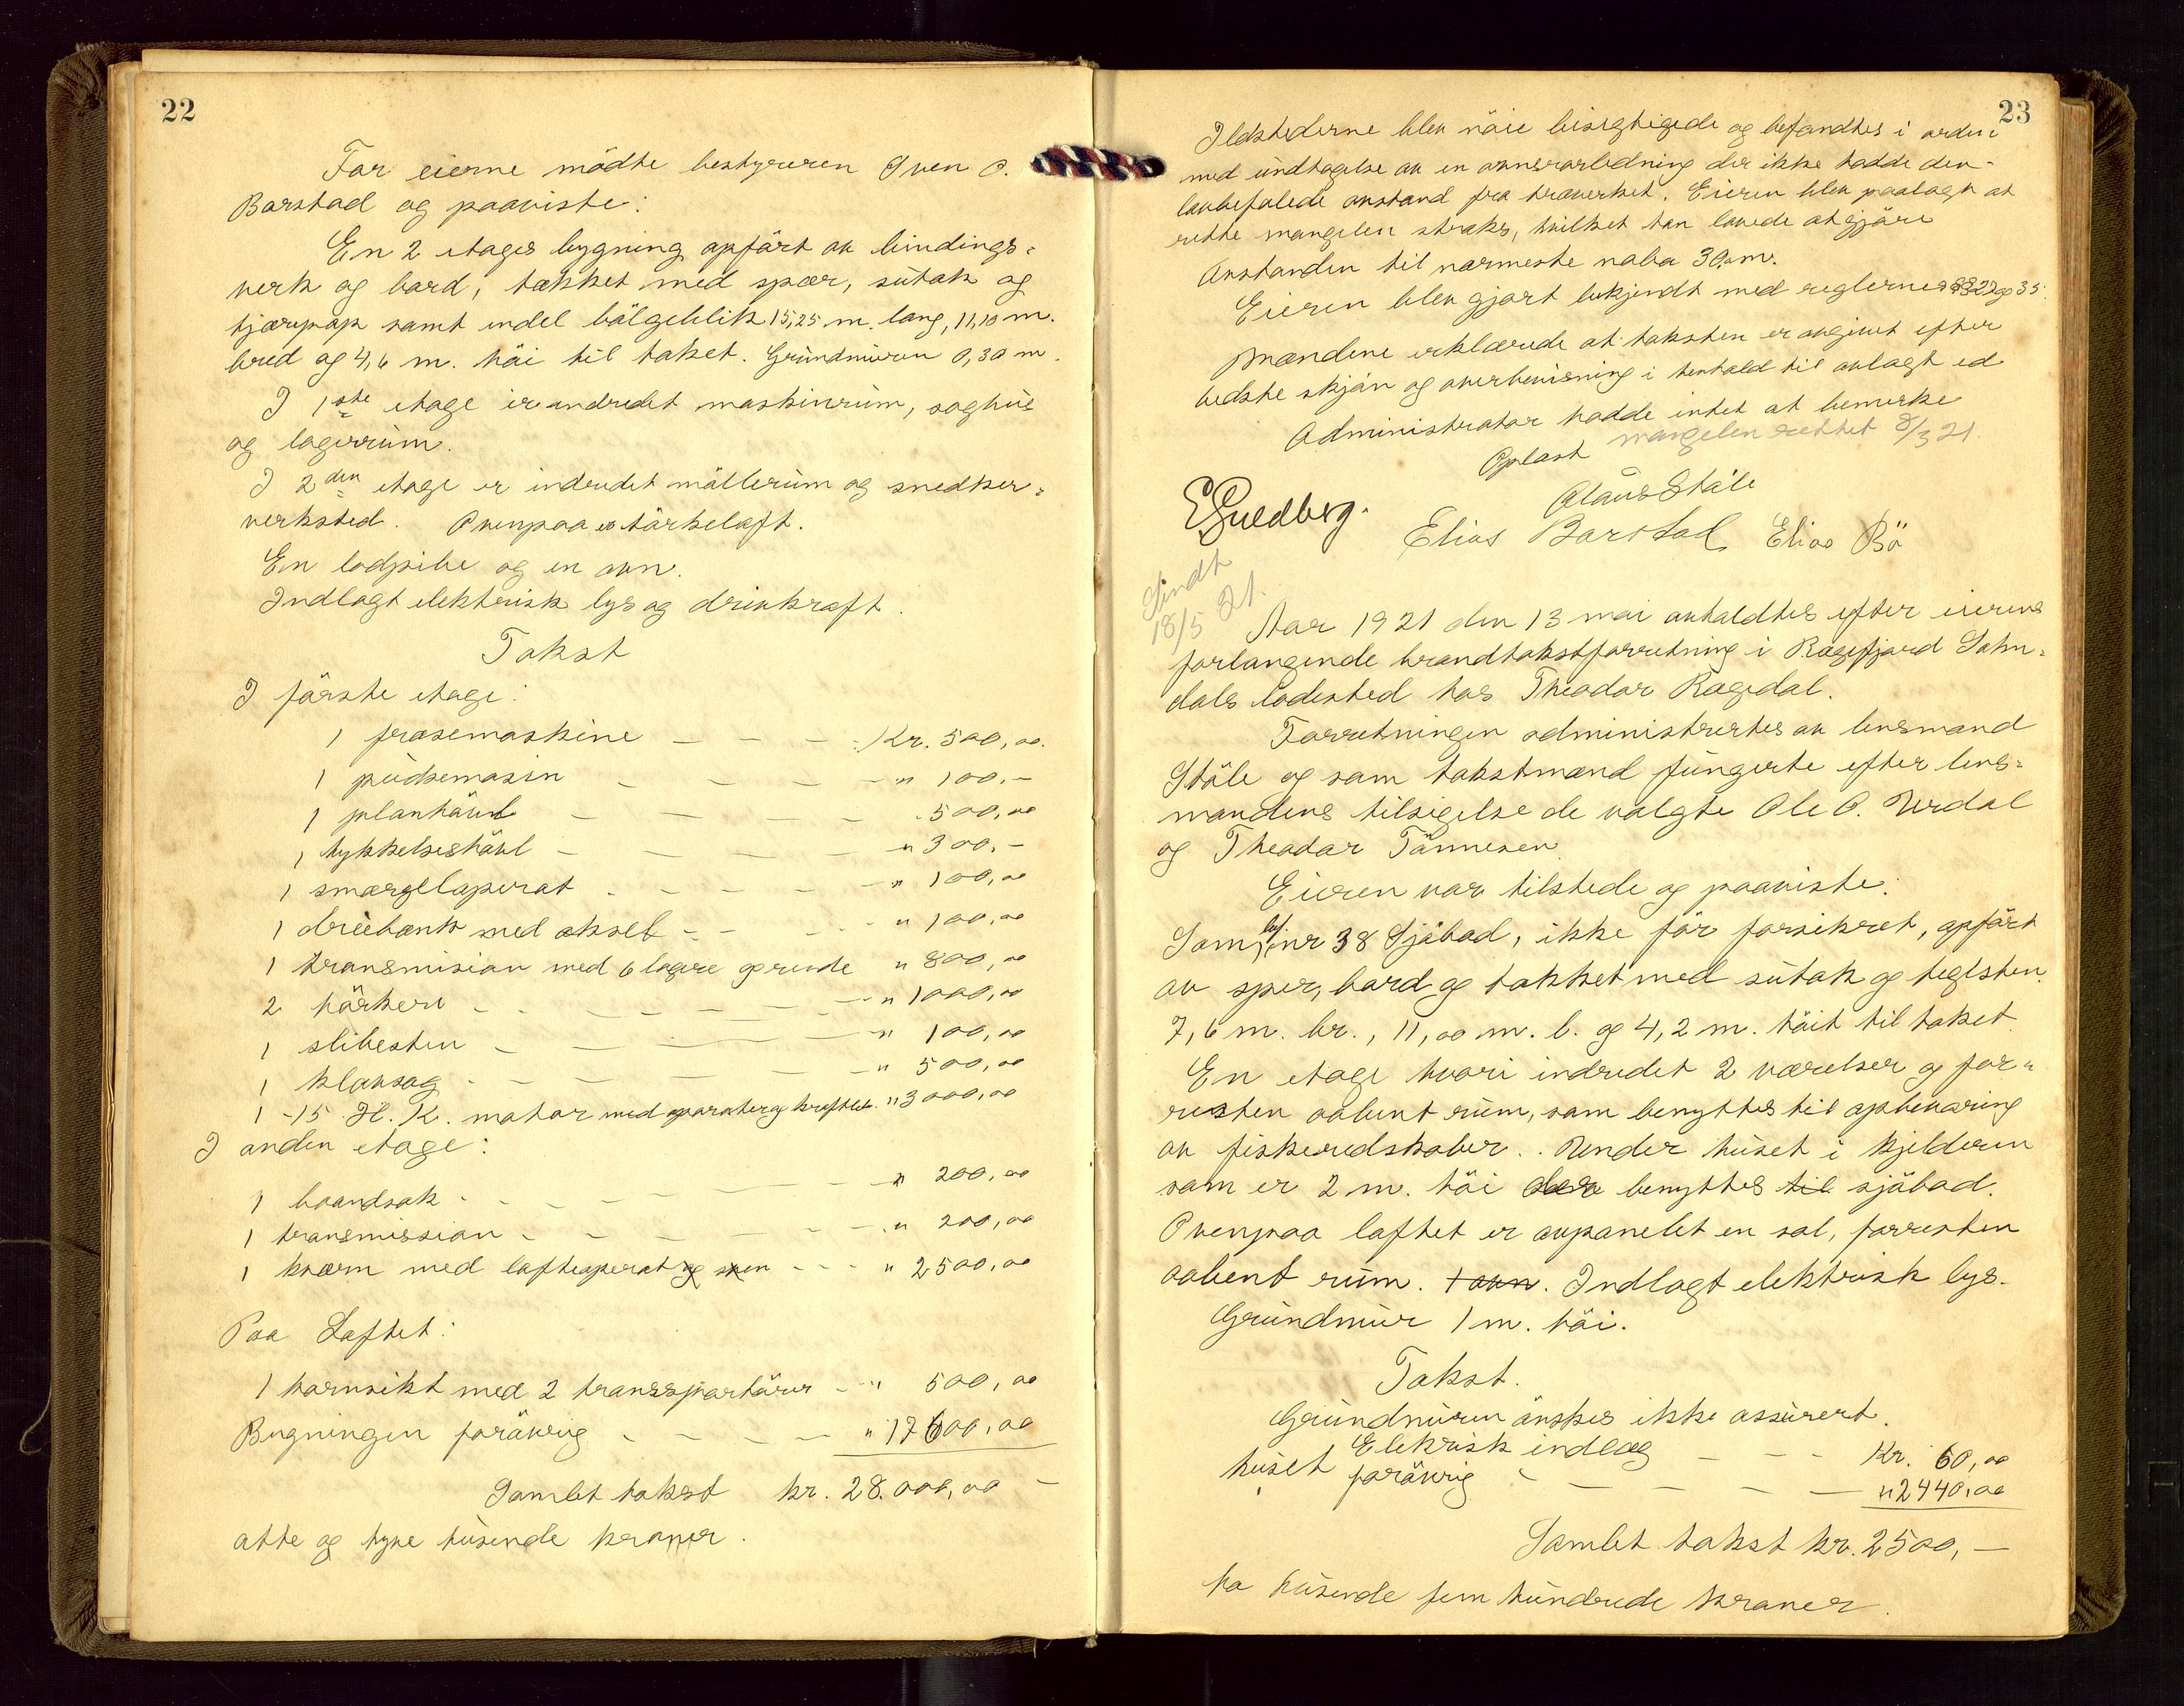 22
For eierne mödte bestyreren Sven O.
Barstad og paaviste:
En 2 etages bygning opfört av bindings=
verk og bord, tækket med spær, sutak og
tjærepap samt endel bölgeblik 15,25 m. lang, 11,10 m.
bred og 4,6 m. höi til taket. Grundmuren 0,30 m.
I 1ste etage er indredet maskinrum, saghus
og lagerrum.
I 2den etage er indredet möllerum og snedker=
verksted. Ovenpaa er törkeloft.
En lodpibe og en ovn.
Indlagt elektrisk lys og drivkraft.
Takst
I förste etage:
1 fræsemaskine - - - Kr. 500,00.
1 pudsemasin - - - " 100.-
1 planhövl - - - 500,00
1 tykkelseshövl - - - " 300.-
1 smærgelaperat - - - " 100,00
1 dreiebænk med aksel - - - " 100,00
1 transmision med 6 lagere og rende " 800,00
2 törkere - - - " 1000,00
1 slibesten - - - " 100,00
1 klovsag - - - " 500,00
1 -15 H. K. motor med aparater og kraftled. " 3000,00
I anden etage:
1 baandsak - - - " 200,00
1 transmission - - - " 200,00
1 kværn med lofteaperat og sten - - - " 2500,00
Paa Loftet:
1 kornsikt med 2 transsportörer - " 500,00
Bygningen forövrig - - - " 17600,00
Samlet takst kr. 28.000,00 -
otte og tyve tusende kroner.
23
Ildstederne blev nöie besigtigede og befandtes i orden
med undtagelse av en ovnsrørledning der ikke hadde den
lovbefalede avstand fra træverket. Eieren blev paalagt at
rette mangelen straks, hvilket han lovede at gjöre
Avstanden til nærmeste nabo 30 m.
Eieren blev gjort bekjendt med reglernes 27 og 35.
Mændene erklærede at taksten er avgivet efter
bedste skjön og overbevisning i henhold til avlagt ed
Administrator hadde intet at bemerke
Oplæst mangelen rettet 8/3 21.
Olaus Ståle
E Svedberg. Elias Barstad Elias Bö
Sendt
18/5 21.
Aar 1921 den 13 mai avholdtes efter eierens
forlangende brandtakstforretning i Rægefjord Sokn=
dals ladested hos Theodor Rægedal.
Forretningen administrertes av lensmand
Ståle og som takstmænd fungerte efter lens=
mandens tilsigelse de valgte Ole O. Urdal
og Theodor Tönnesen.
Eieren var tilstede og paaviste:
Som b nr 38 Sjöbod, ikke för forsikret, opfört
av sper, bord og tækket med sutak og teglsten.
7,6 m. br., 11,00 m. l. og 4,2 m. höit til taket.
En etage hvori indredet 2 værelser og for=
resten aabent rum, som benyttes til opbevaring
av fiskeredskaber. Under huset i kjelderen
som er 2 m. höi benyttes til sjöbod.
Ovenpaa loftet er avpanelet en sal, forresten
aabent rum. 1 ovn. Indlagt elektrisk lys.
Grundmur 1 m. höi.
Takst.
Grundmuren önskes ikke assurert.
Elektrisk indlæg - - - Kr. 60,00
huset forövrig - - - " 2440,00
Samlet takst kr. 2500,-
to tusende fem hundrede kroner.